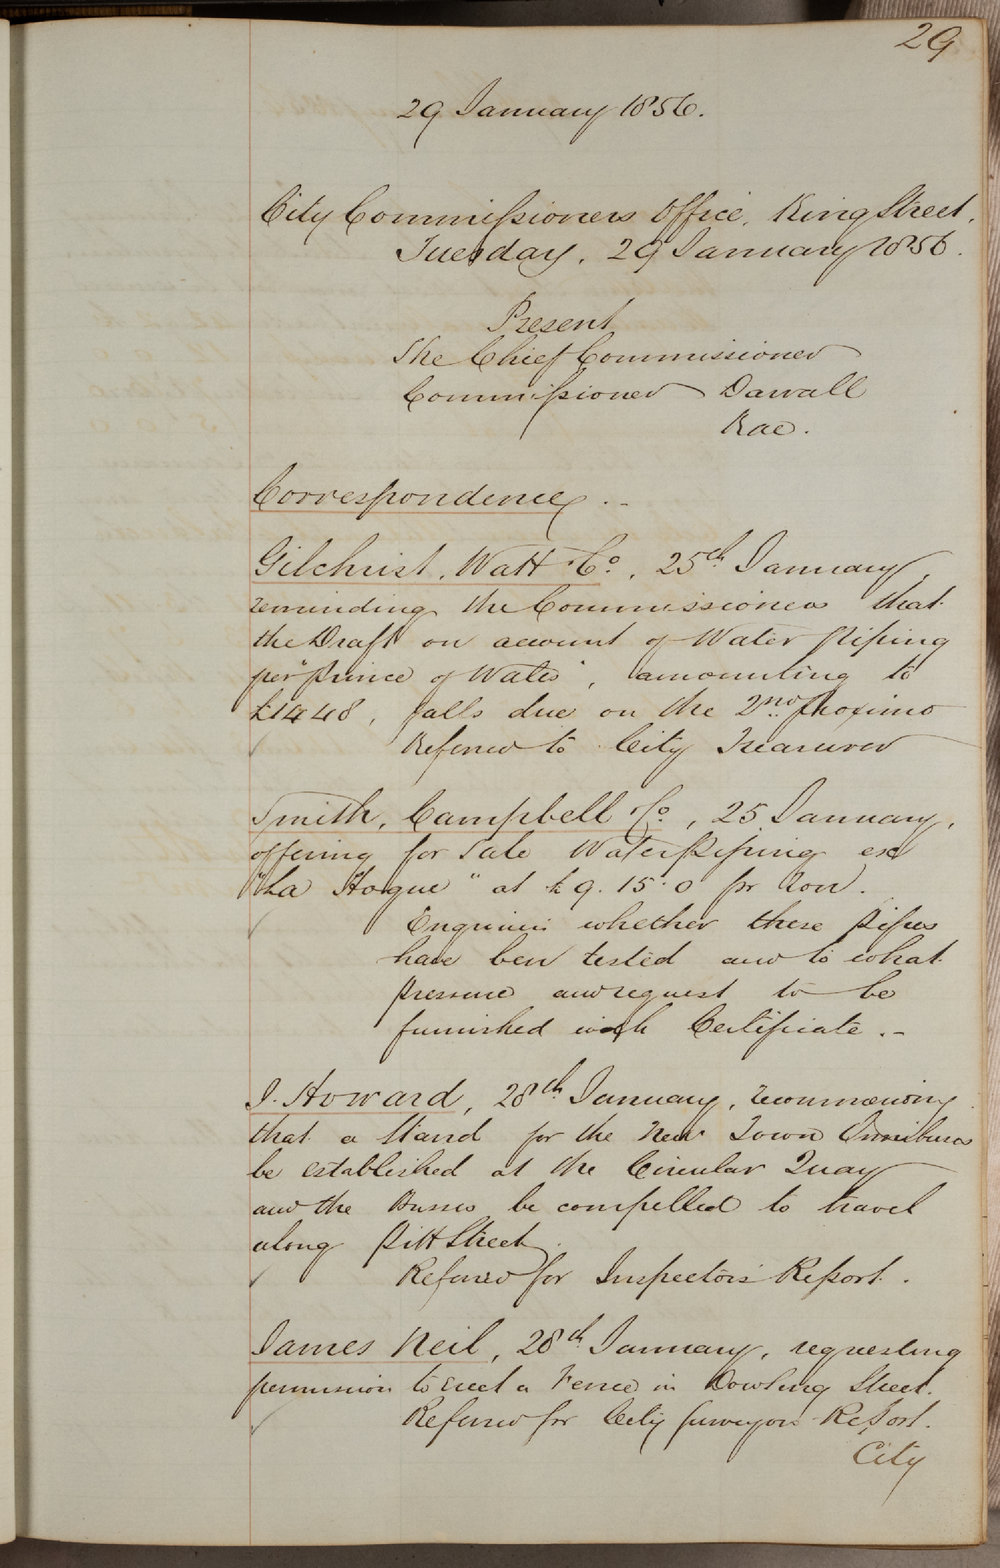 29
29 January 1856.
City Commissioners Office, King Street,
Tuesday, 29 January 1856.
Present
The Chief Commissioner
Commissioner Darvall
Rae.
Correspondence.-
Gilchrist, Watt & Co., 25th January,
reminding the Commissioners that
the Draft on account of Water piping
per "Prince of Wales", amounting to
£1448, falls due on the 2nd proximo
Referred to City Treasurer
Smith, Campbell & Co, 25 January,
offering for sale Water Piping ex
"La Hogue" at £9.15.0 pr Ton.
Enquiries whether these pipes
have been tested and to what
pressure and request to be
furnished with Certificate.-
J. Howard, 28th January, recommending
that a Stand for the New Town Omnibuses
be established at the Circular Quay
and the Busses be compelled to travel
along Pitt Street.
Referred for Inspectors Report.
James Neil, 28th January, requesting
permission to erect a Fence in Dowling Street.
Referred for City Surveyors Report.
City